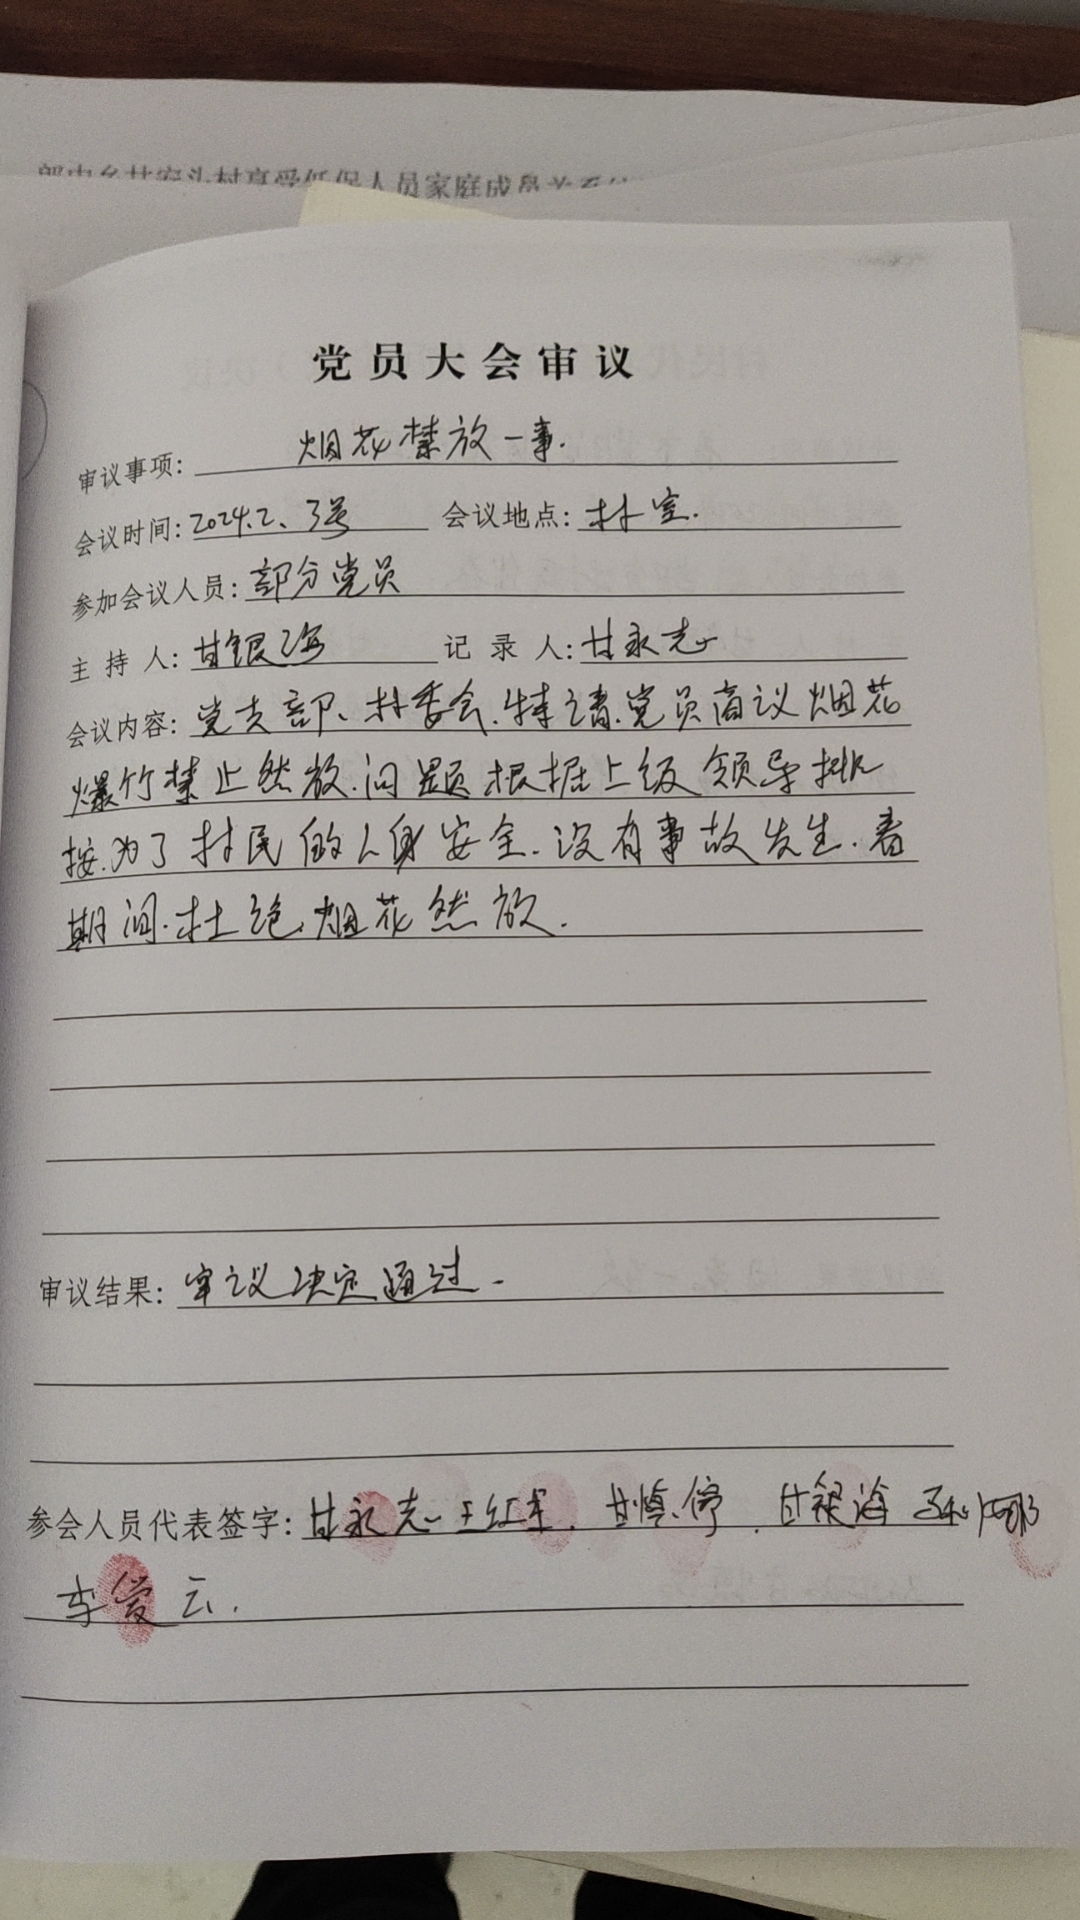 郎中乡甘安头村享受低保人员家庭成员关系
党员大会审议
审议事项: 烟花禁放一事.
会议时间: 2024.2、3号 会议地点: 村室.
参加会议人员: 部分党员
主持人: 甘银海 记录人: 甘永志
会议内容: 党支部、村委会.特请.党员商议烟花
爆竹禁止然放.问题根据上级领导批
按.为了村民的人身安全.没有事故发生.春
期间.杜绝.烟花然放.
审议结果: 审议决定通过.
参会人员代表签字: 甘永志 王红军. 甘慎停. 甘银海
李爱云.